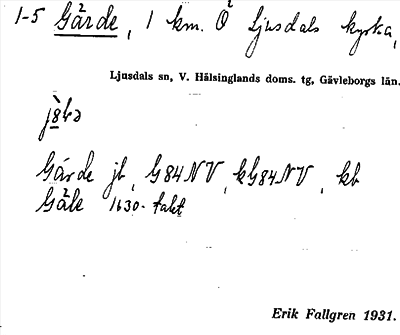 1-5 Gärde, 1 km. Ö Ljusdals kyrka,
Ljusdals sn, V. Hälsinglands doms. tg, Gävleborgs län.
Gärde jb, G84NV, kG84NV, kb
Gäle 1630-talet
Erik Fallgren 1931.